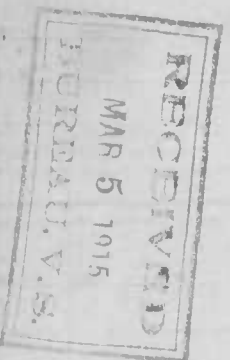 RECEIVED
MAR 5 1915
BUREAU. V.S.